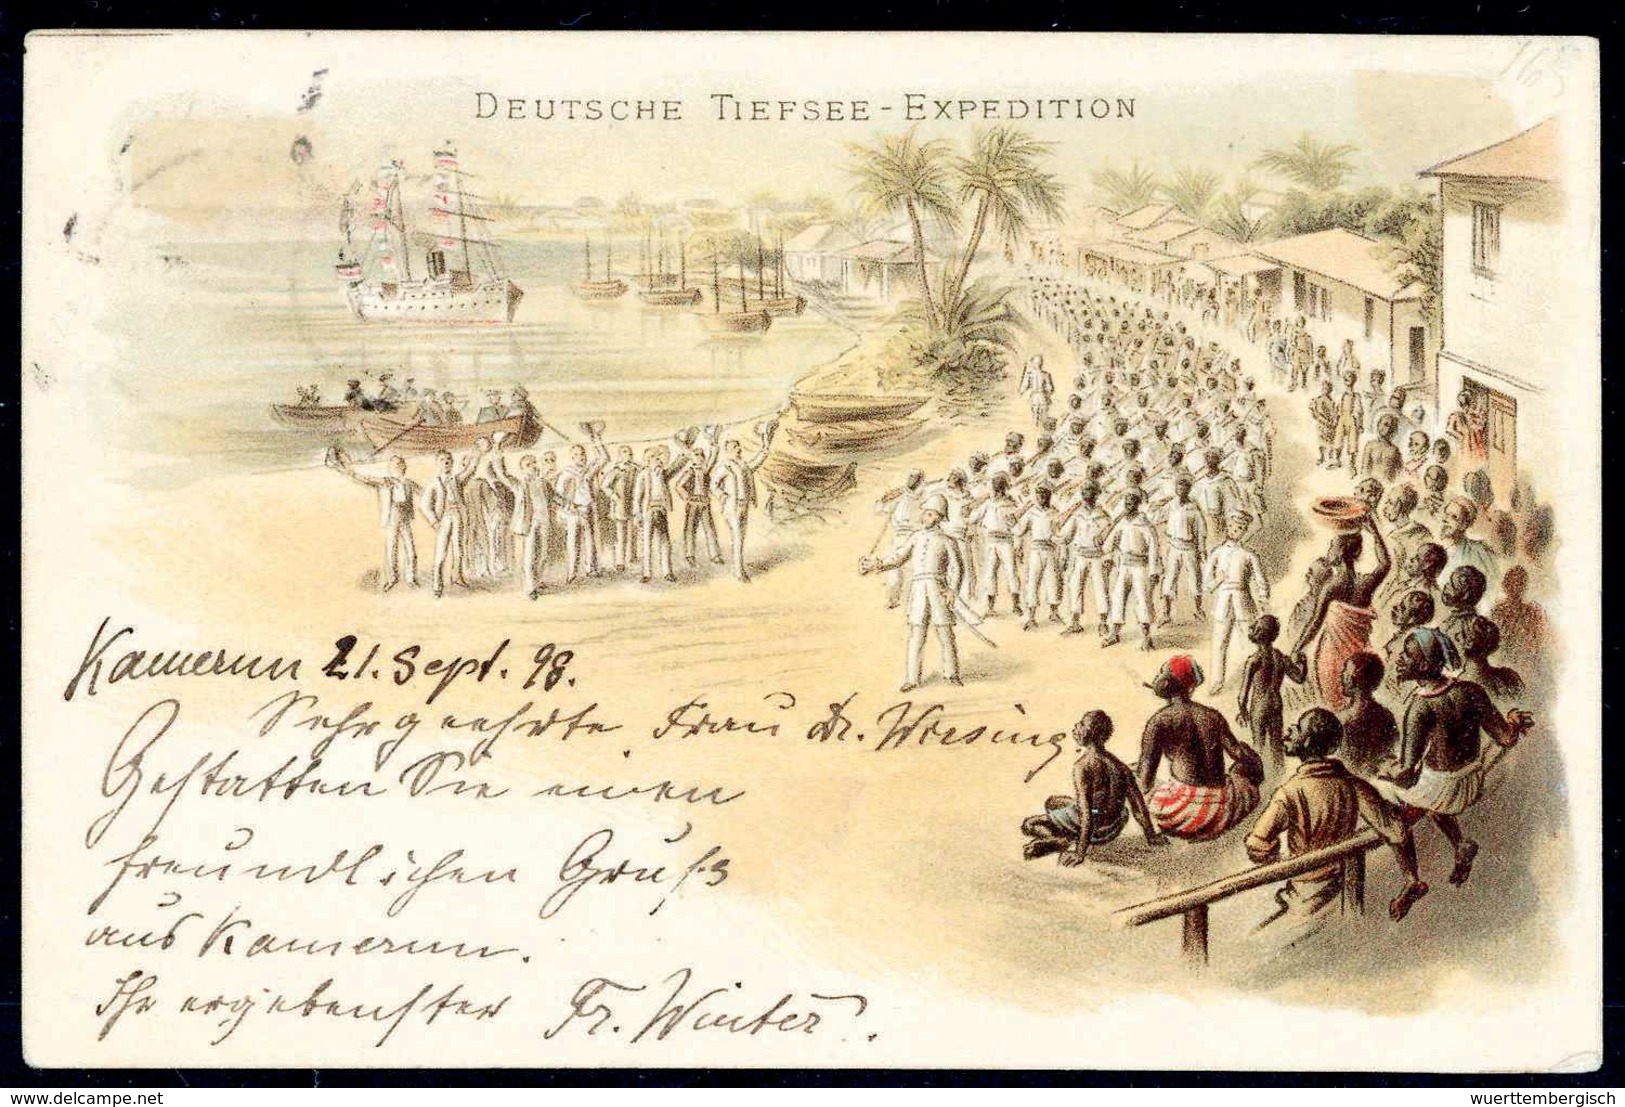 DEUTSCHE TIEFSEE-EXPEDITION
Kamerun 21. Sept. 98.
Sehrgeehrte Frau Dr. Wiesing.
Gestatten Sie einen
freundlichen Gruß
aus Kamerun.
Ihr ergebenster Fr. Winter.
www.delcampe.net
wuerttembergisch